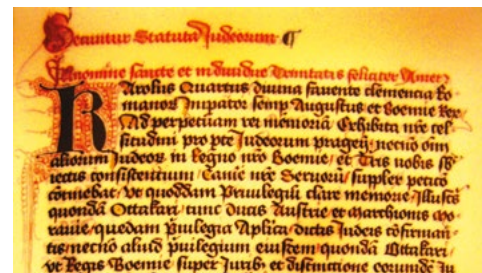 Secuntur Statuta Judeorum ¶
In nomine sancte et individue Trinitatis feliciter Amen
KArolus Quartus divina favente clementia Ro-
manorum Imperator semper Augustus et Boemie Rex
Ad perpetuam rei memoriam Exhibita nostre cel-
situdini pro parte Judeorum pragensium necnon omnium
aliorum Judeorum in Regno nostro Boemie et Terris nobis sub-
iectis consistentium Camere nostre Servorum supplex peticio
continebat Ut quoddam Privilegium clare memorie Illustris
quondam Ottakari tunc Ducis Austrie et marchionis mo-
ravie quedam privilegia Aplica dictis Judeis confirman-
tis necnon aliud privilegium eiusdem quondam Ottakari
ut Regis Boemie super Juribus et distinctione eorundem Ju-